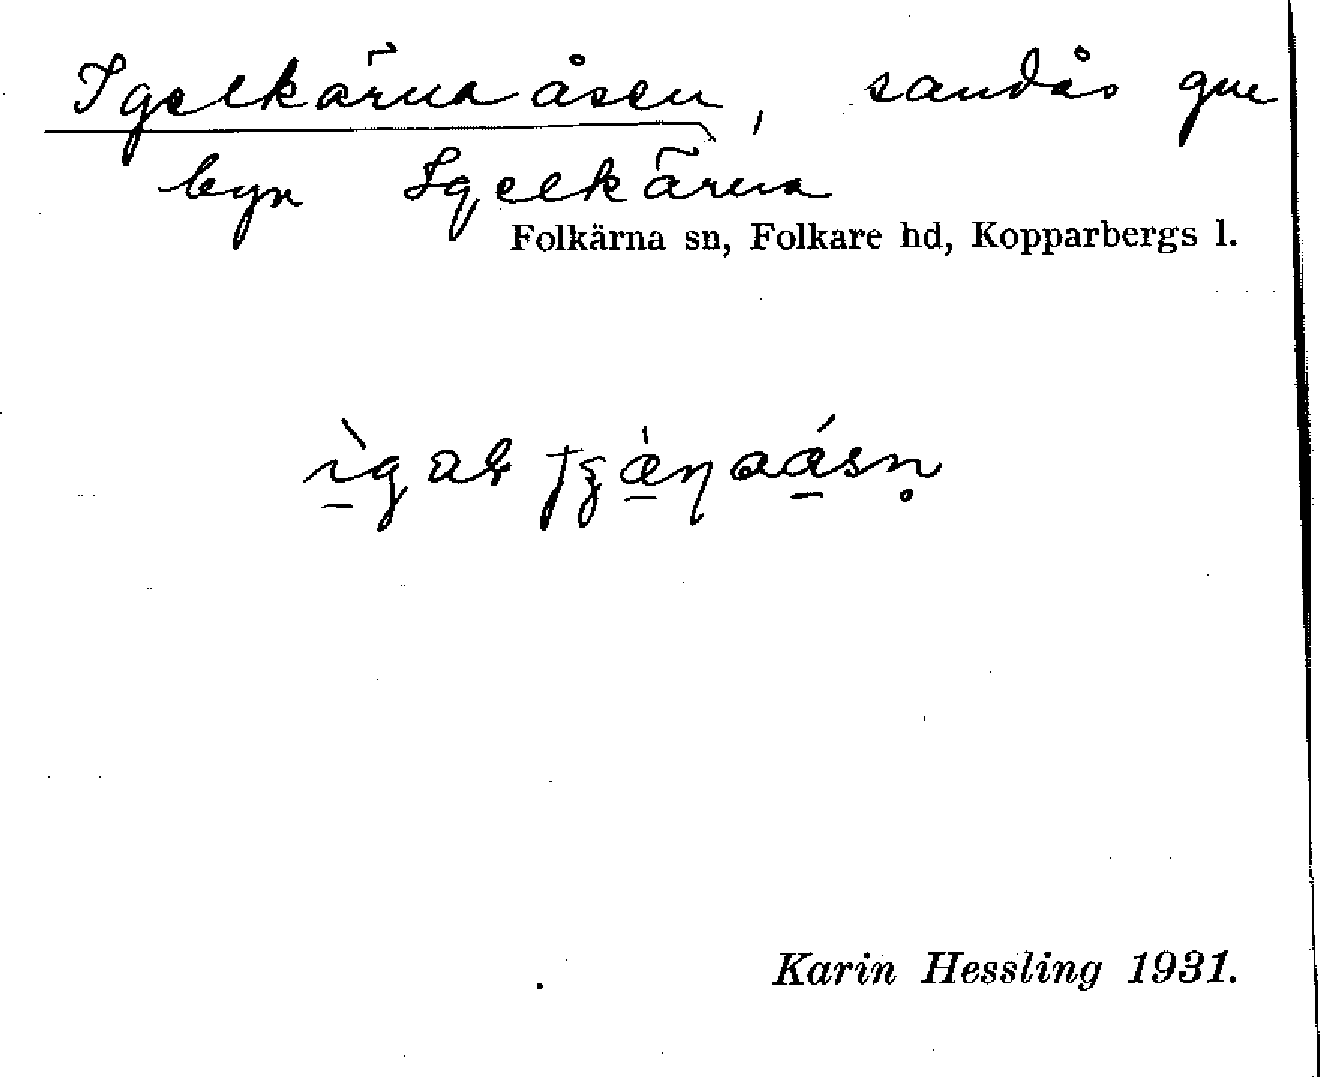 Igelkärnaåsen, sandås gm
byn Igelkärna
Folkärna sn, Folkare hd, Kopparbergs l.
Karin Hessling 1931.